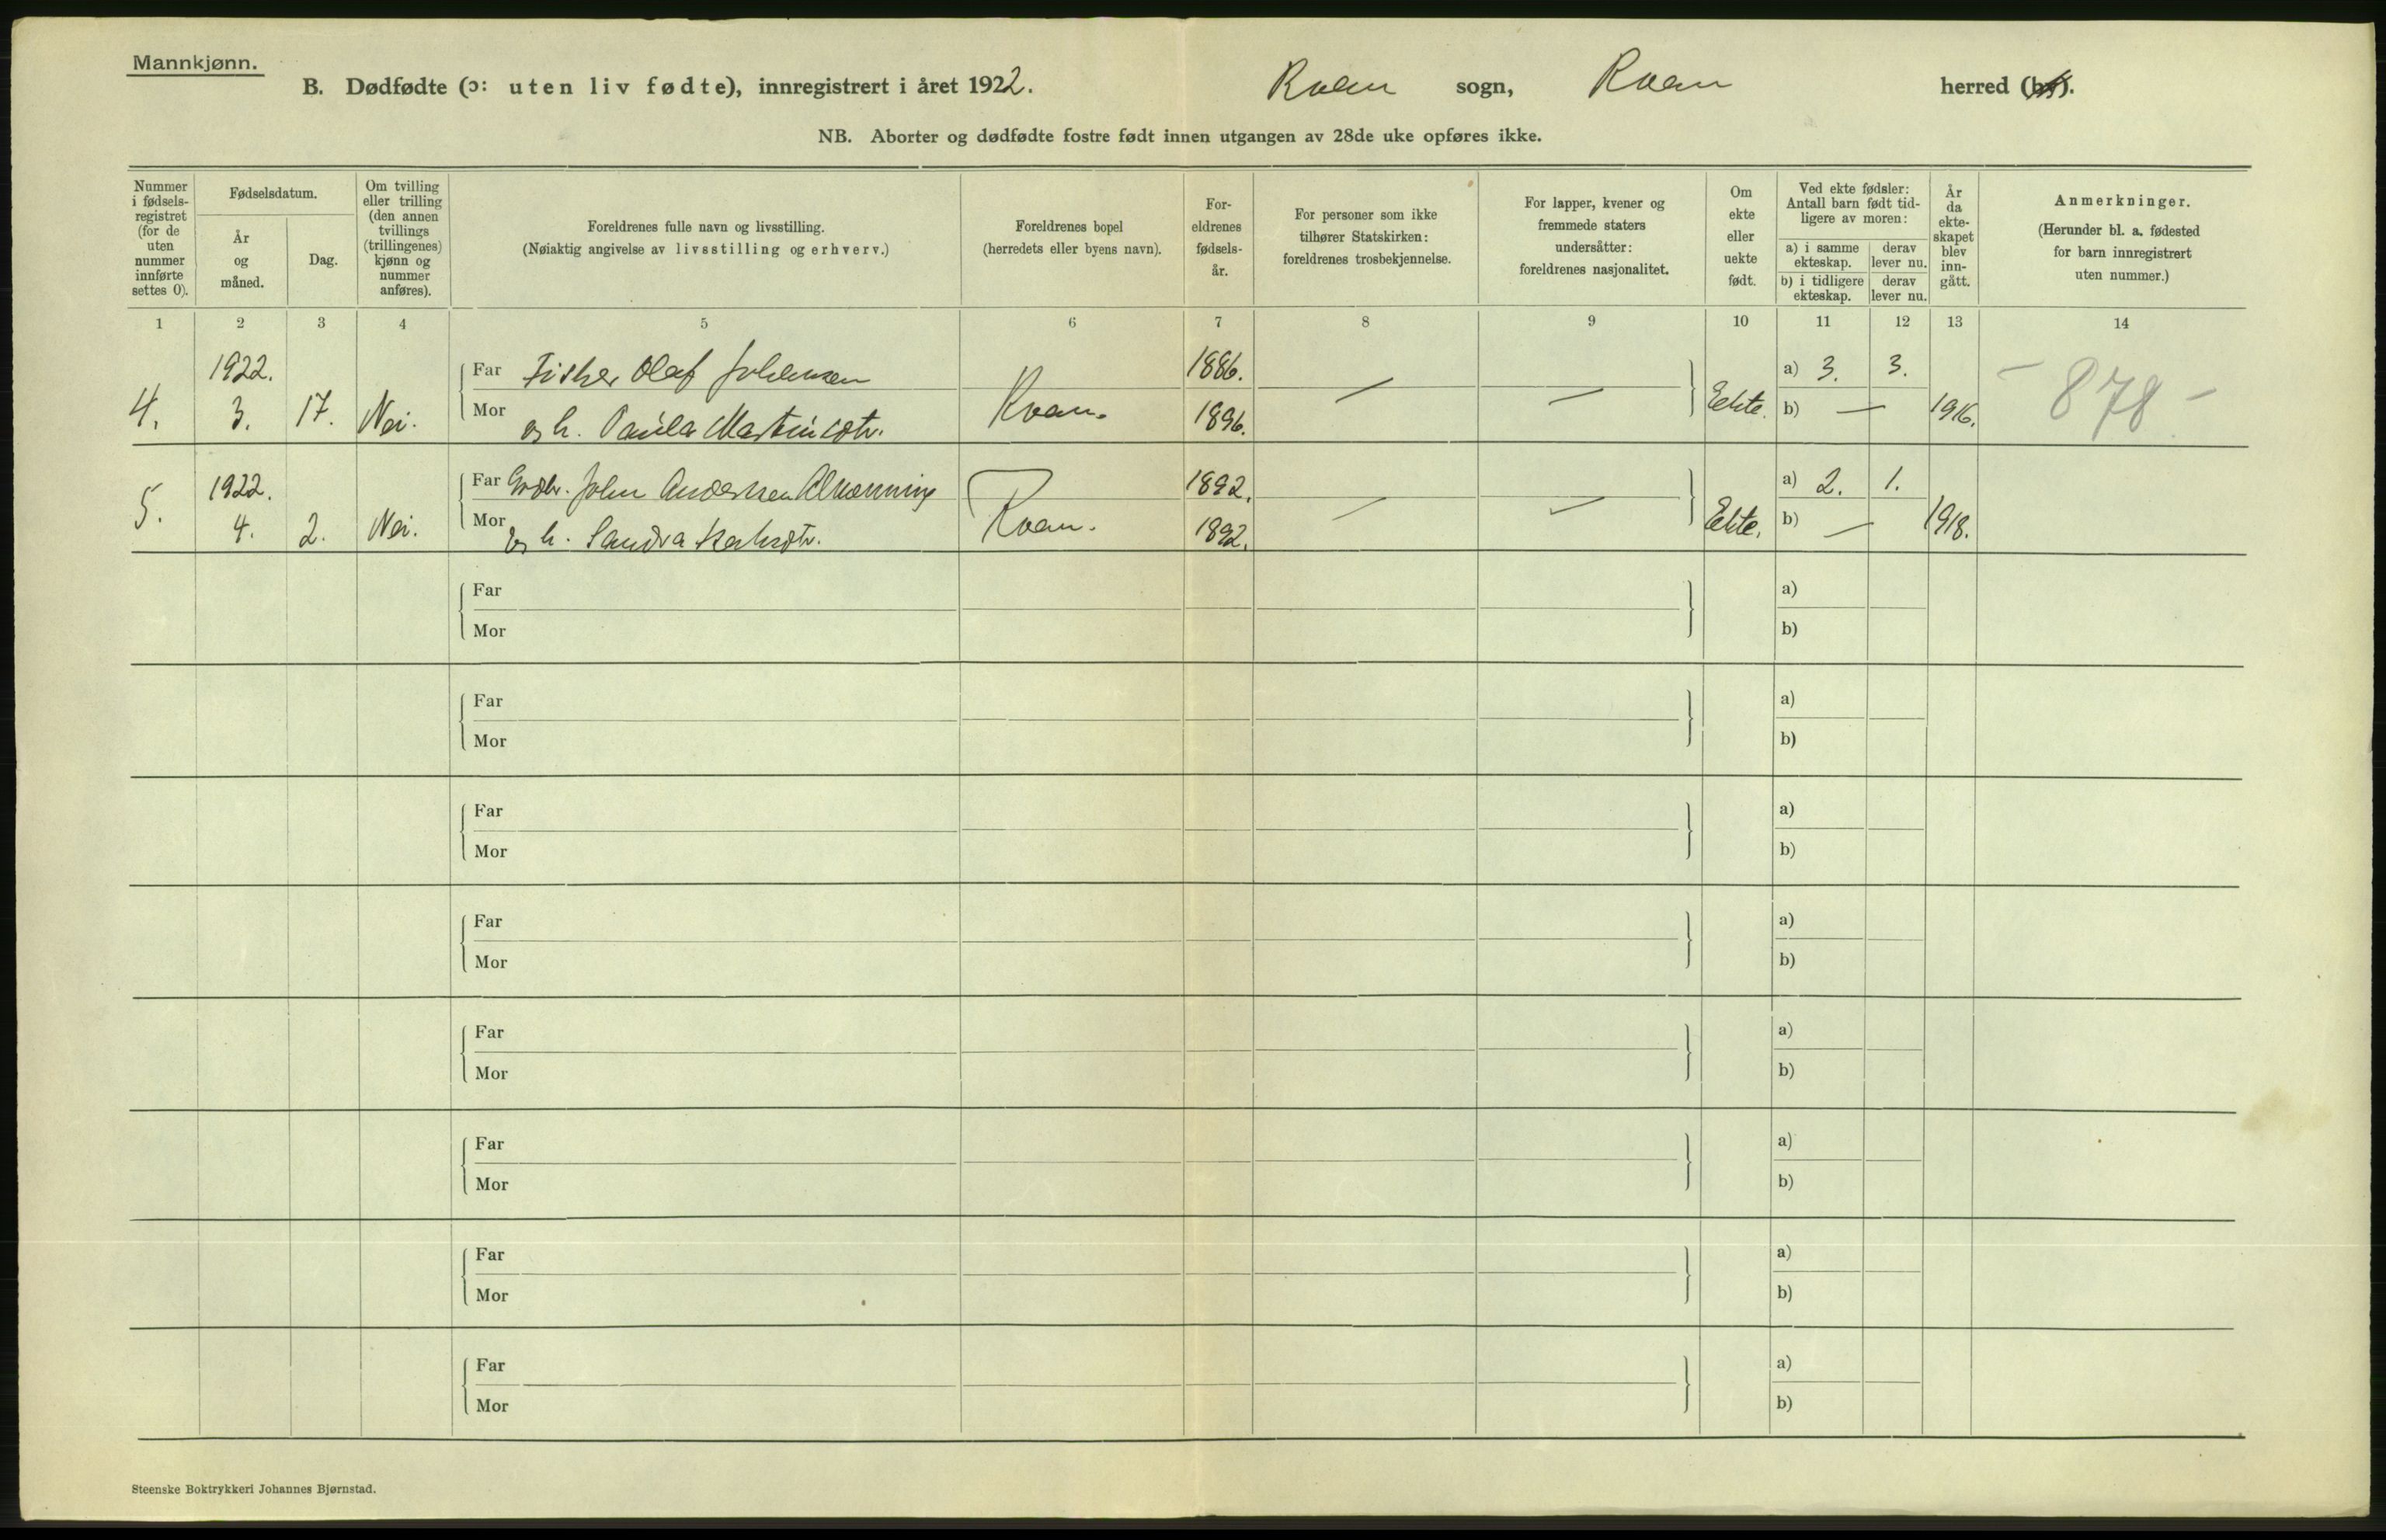 Mannkjønn.
B. Dødfødte (ɔ: uten liv fødte), innregistrert i året 1922.
Roan sogn, Roan herred (by).
NB. Aborter og dødfødte fostre født innen utgangen av 28de uke opføres ikke.
Nummer
i fødsels-
registret
(for de
uten
nummer
innførte
settes 0).
Fødselsdatum.
År
og
måned.
Dag.
Om tvilling
eller trilling
(den annen
tvillings
(trillingenes)
kjønn og
nummer
anføres).
Foreldrenes fulle navn og livsstilling.
(Nøiaktig angivelse av livsstilling og erhverv.)
Foreldrenes bopel
(herredets eller byens navn).
For-
eldrenes
fødsels-
år.
For personer som ikke
tilhører Statskirken:
foreldrenes trosbekjennelse.
For lapper, kvener og
fremmede staters
undersåtter:
foreldrenes nasjonalitet.
Om
ekte
eller
uekte
født.
Ved ekte fødsler:
Antall barn født tid-
ligere av moren:
a) i samme
ekteskap.
derav
lever nu.
b) i tidligere
ekteskap.
derav
lever nu.
År
da
ekte-
skapet
blev
inn-
gått.
Anmerkninger.
(Herunder bl. a. fødested
for barn innregistrert
uten nummer.)
1 2 3 4 5 6 7 8 9 10 11 12 13 14
4. 1922. 3. 17. Nei.
Far Fisker Olaf Johansen
Mor og h. Paula Martinsdtr.
Roan. 1886. 1896. — — Ekte. a) 3. 3. b) — 1916. - 878 -
5. 1922. 4. 2. Nei.
Far Grdbr. John Andersen
Mor og h. Sandra
Roan. 1892. 1892. — — Ekte. a) 2. 1. b) — 1918.
Far a)
Mor b)
Far a)
Mor b)
Far a)
Mor b)
Far a)
Mor b)
Far a)
Mor b)
Far a)
Mor b)
Far a)
Mor b)
Far a)
Mor b)
Steenske Boktrykkeri Johannes Bjørnstad.